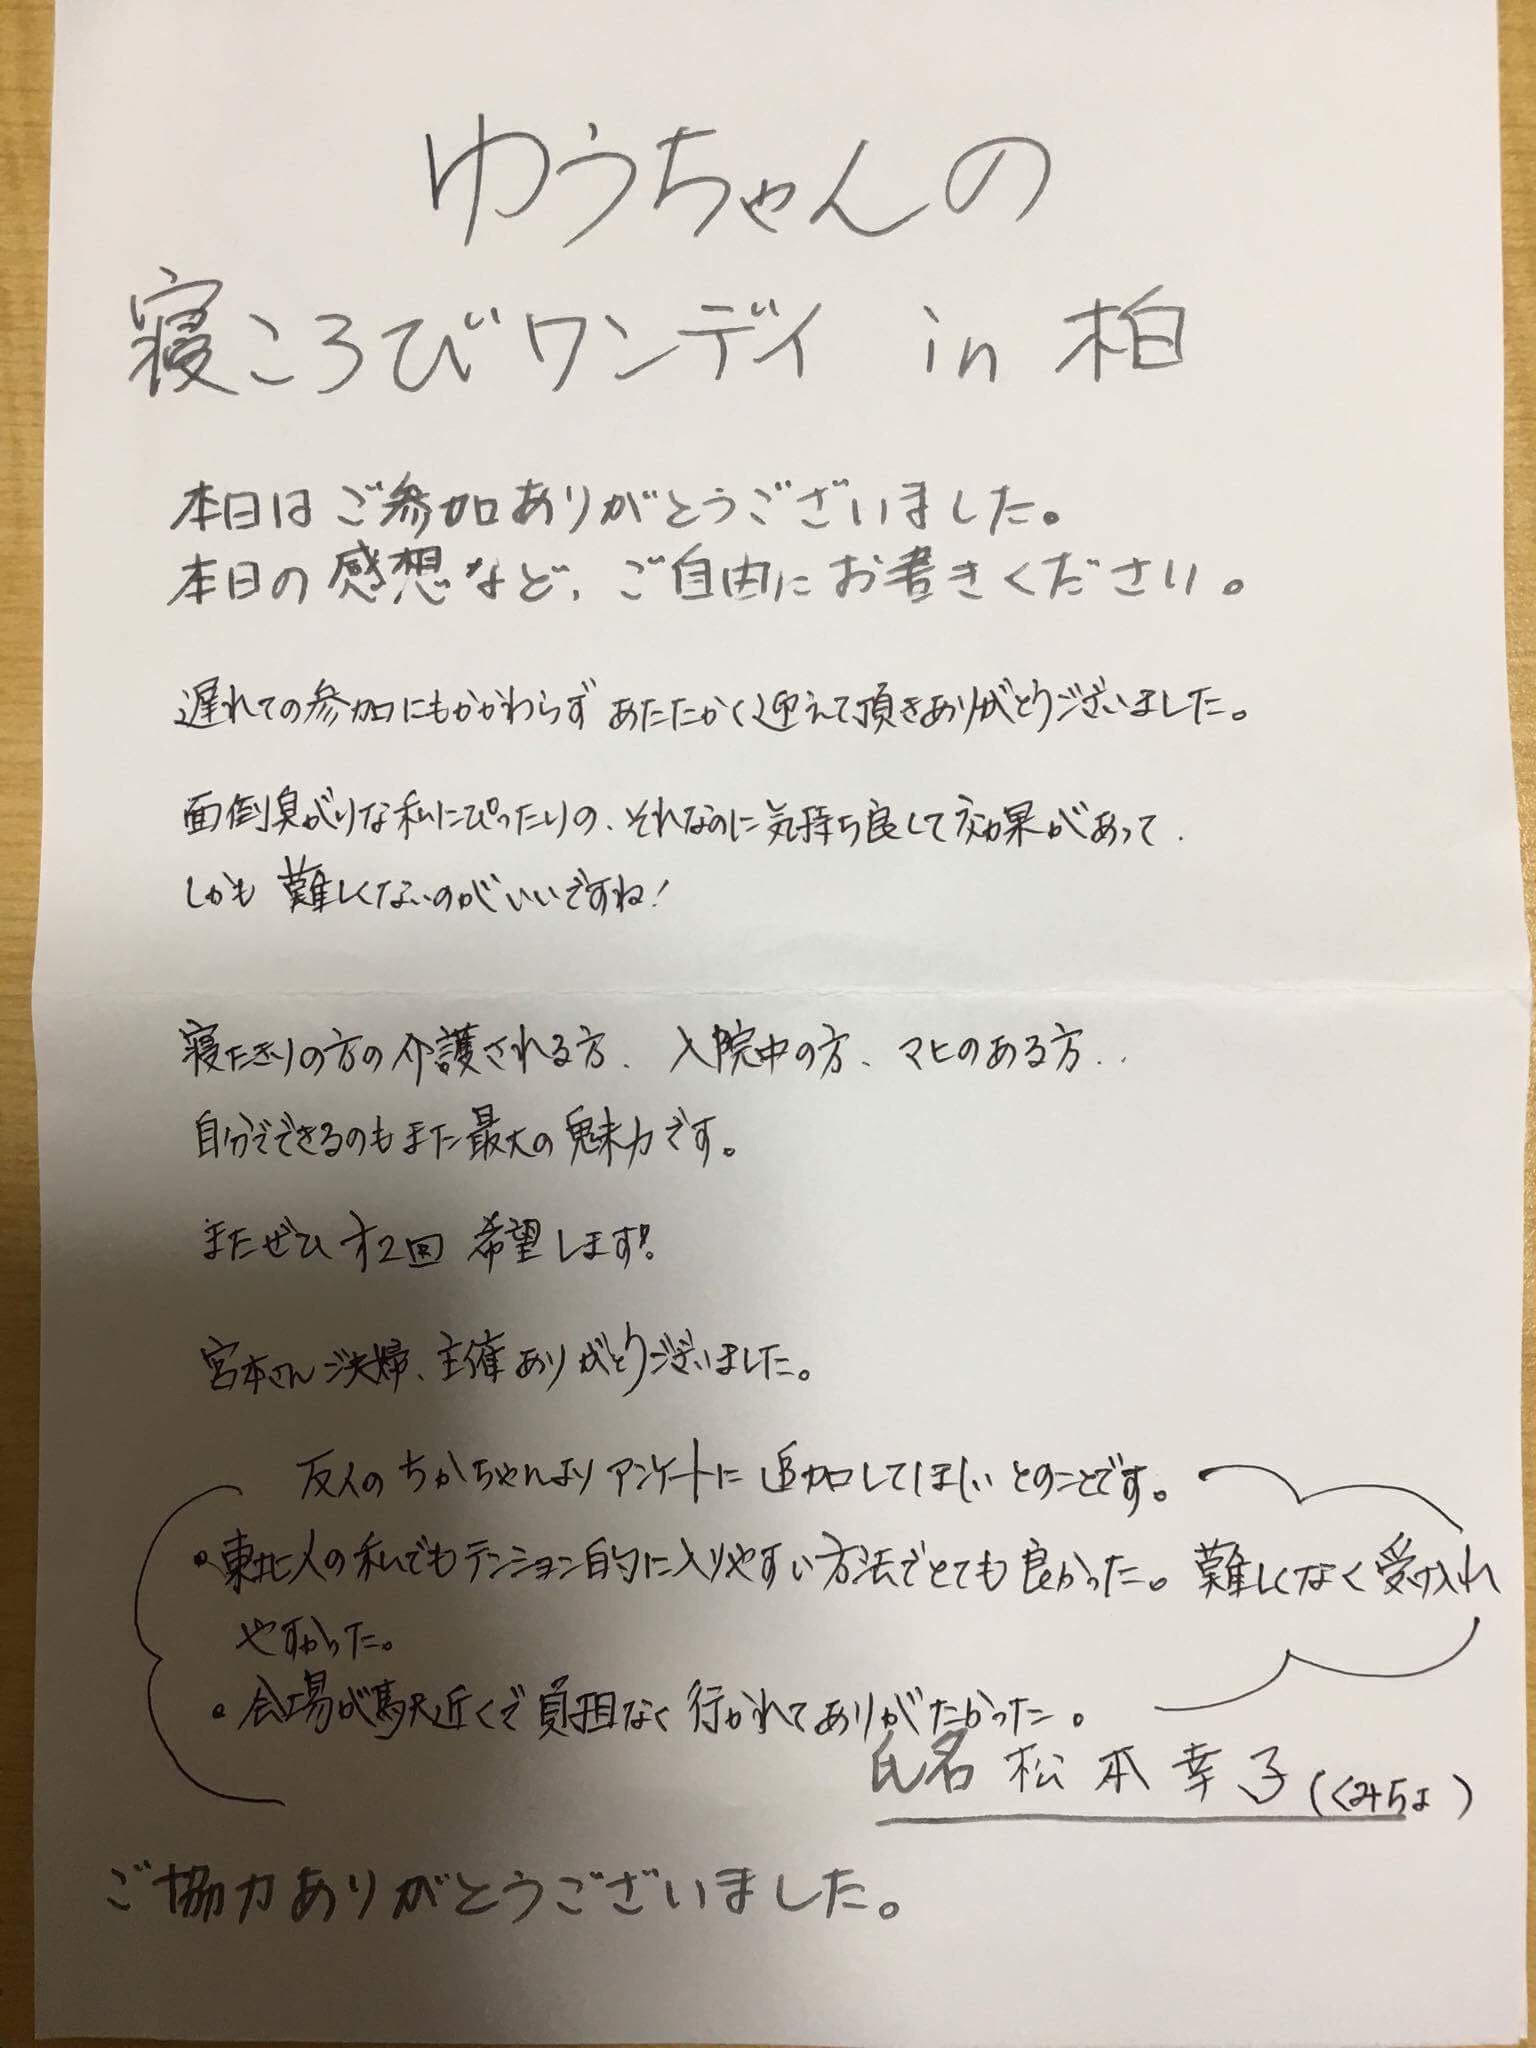 ゆうちゃんの
寝ころびワンデイ in 柏
本日はご参加ありがとうございました。
本日の感想など、ご自由にお書きください。
遅れての参加にもかかわらず あたたかく迎えて頂きありがとうございました。
面倒臭がりな私にぴったりの、それなのに気持ち良くて効果があって、
しかも 難しくないのがいいですね!
寝たきりの方の介護される方、入院中の方、マヒのある方、、
自分でできるのもまた最大の魅力です。
またぜひ 才2回 希望します!
宮本さんご夫婦、主催ありがとうございました。
友人のちかちゃんより アンケートに 追加してほしい とのことです。
・東北人の私でもテンション的に入りやすい方法でとても良かった。難しくなく受け入れ
やすかった。
・会場が駅近くで負担なく行かれてありがたかった。
氏名 松本幸子(くみちょ)
ご協力ありがとうございました。